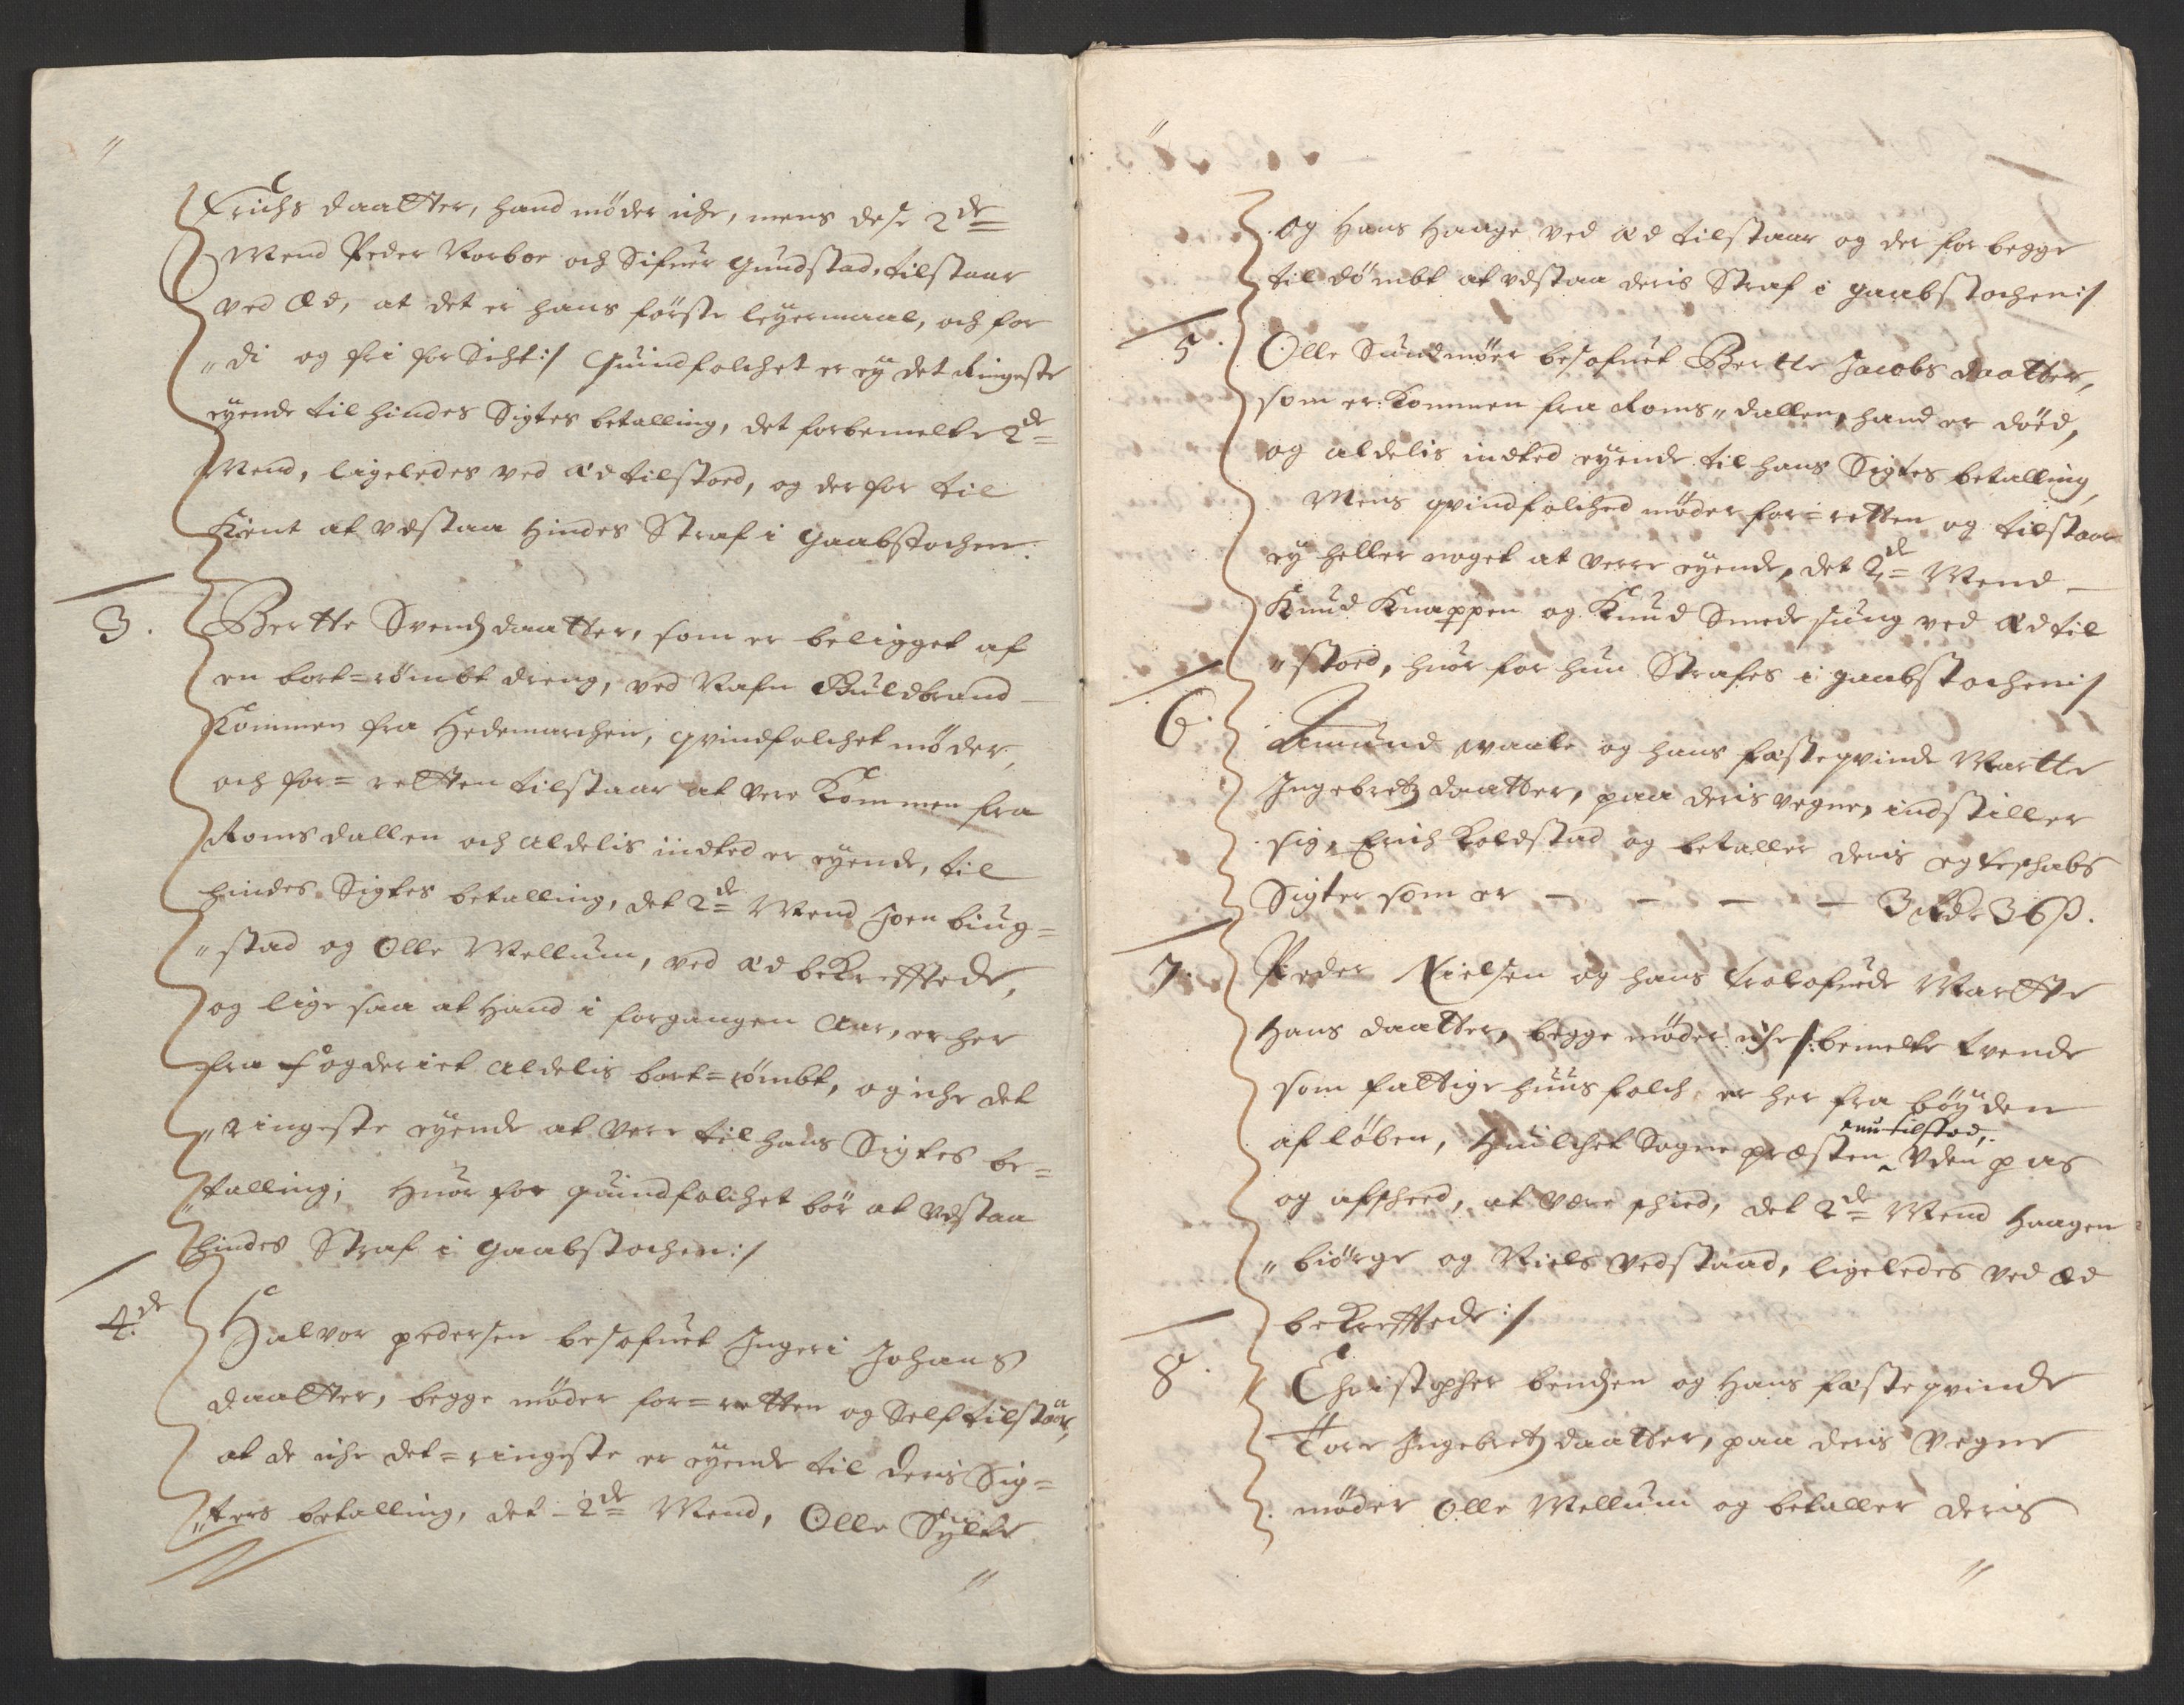 Erichs daatter, hand møder iche, mens dese 2de
Mend Peder Norboe och Sifuer Gundstad, tilstaar
ved Æd, at det er hans første leyermaal, och for
"di og fri for Sicht:/ Quindfolchet er ey det Ringeste
eyende til hindes Sigtes betalling, det forbemelte 2de
Mend, ligeledes ved Æd tilstoed, og der for til
Kient at vdstaa hindes Straf i gaabstochen:
3. Berthe Svendsdaatter, som er beligget af
en bort=römbt dreng, ved Nafn Guldbrand
Kommen fra Hedemarchen, qvindfolchet møder,
och for=retten tilstaar at vere Kommen fra
Romsdallen och aldelis intted er eyende, til
hindes Sigtes betalling, det 2de Mend Joen biug=
"stad og Olle Mellum, ved Æd bekrefftede,
og lige saa at hand i forgangen Aar, er her
fra fogderiet aldelis bort=römbt, og iche det
"ringeste eyende at vere til hans Sigtes be=
"talling, Huor for quindfolchet bör at vdstaa
hindes Straf i gaabstochen:/
4.de Halvor pedersen besofuet Ingeri Johans
daatter, begge møder for=retten og Self tilstaar,
at de iche det=ringeste er eyende til deris Sig=
"ters betalling, det 2de Mend, Olle Sylte
og Hans Haage ved Æd tilstaar og der for begge
til dömbt at vdstaa deris Straf i gaabstochen:/
5. Olle Sundmöer besofuet Berthe Jacobs daatter,
som er Kommen fra Roms"dallen, hand er död,
og aldelis intted eyende til hans Sigtes betalling,
Mens qvindfolched møder for=retten og tilstaar
ey heller noget at verre eyende, det 2de Mend
Knud Knappen og Knud Smedesung ved Æd til
"stoed, huor for hun Strafes i gaabstochen:/
6. Amund waale og hans fæsteqvinde Marthe
Ingebretz daatter, paa deris vegne, indstiller
sig, Erich Koldstad og betaller deris egteschabs
Sigter som er - - - - 3 Rdr 36 ß.
7. Peder Nielsen og hans trolofuede Marthe
Hans daatter, begge møder iche /: bemelte tvende
som fattige huus folch, er her fra böyden
af löben, Huilchet Sogne præsten nu tilstod, Vden pas
og afscheed, at vere scheed, det 2de Mend Haagen
"biörge og Niels vedstaad, ligeledes ved Æd
bekrefftede:/
8. Christopher bendsen og Hans fæsteqvinde
Tore Ingebretz daatter, paa deris vegne
møder Olle Mellum og betaller deris